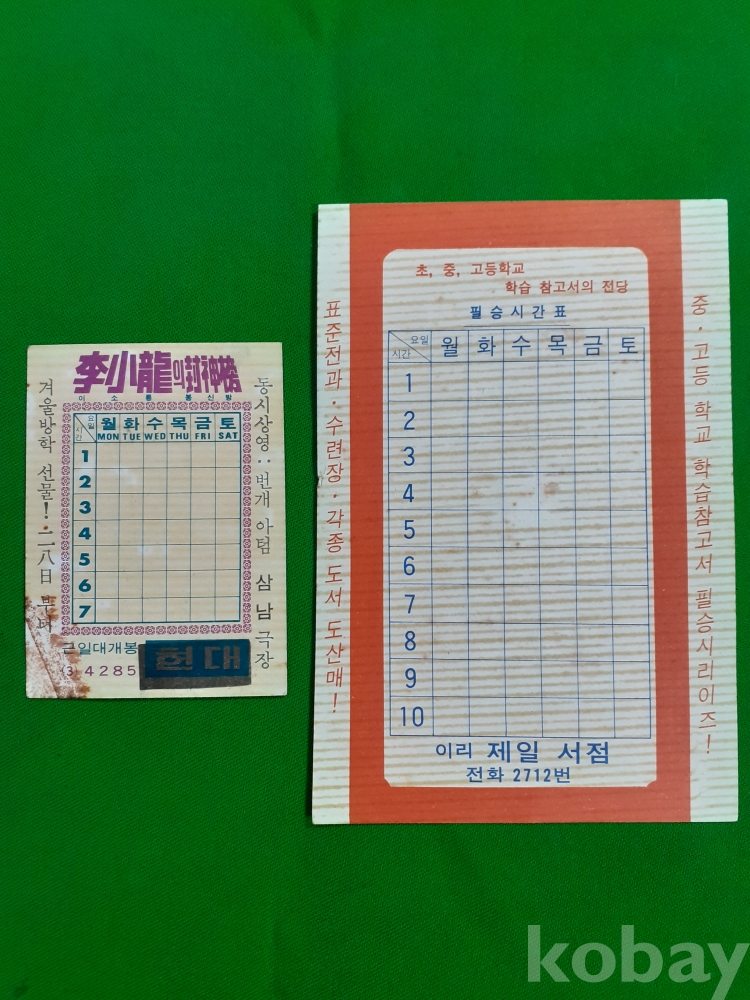 李小龍의封神榜
이 소 룡 봉 신 방
겨울방학 선물! 一二八日 부터
요일
시간
월 화 수 목 금 토
MON TUE WED THU FRI SAT
1
2
3
4
5
6
7
동시상영:번개 아텀 삼남극장
근일대개봉
③4285
현대
초, 중, 고등학교
학습 참고서의 전당
필승시간표
표준전과·수련장·각종 도서 도산매!
요일
시간
월 화 수 목 금 토
1
2
3
4
5
6
7
8
9
10
이리 제일 서점
전화 2712번
중·고등 학교 학습참고서 필승시리이즈!
kobay